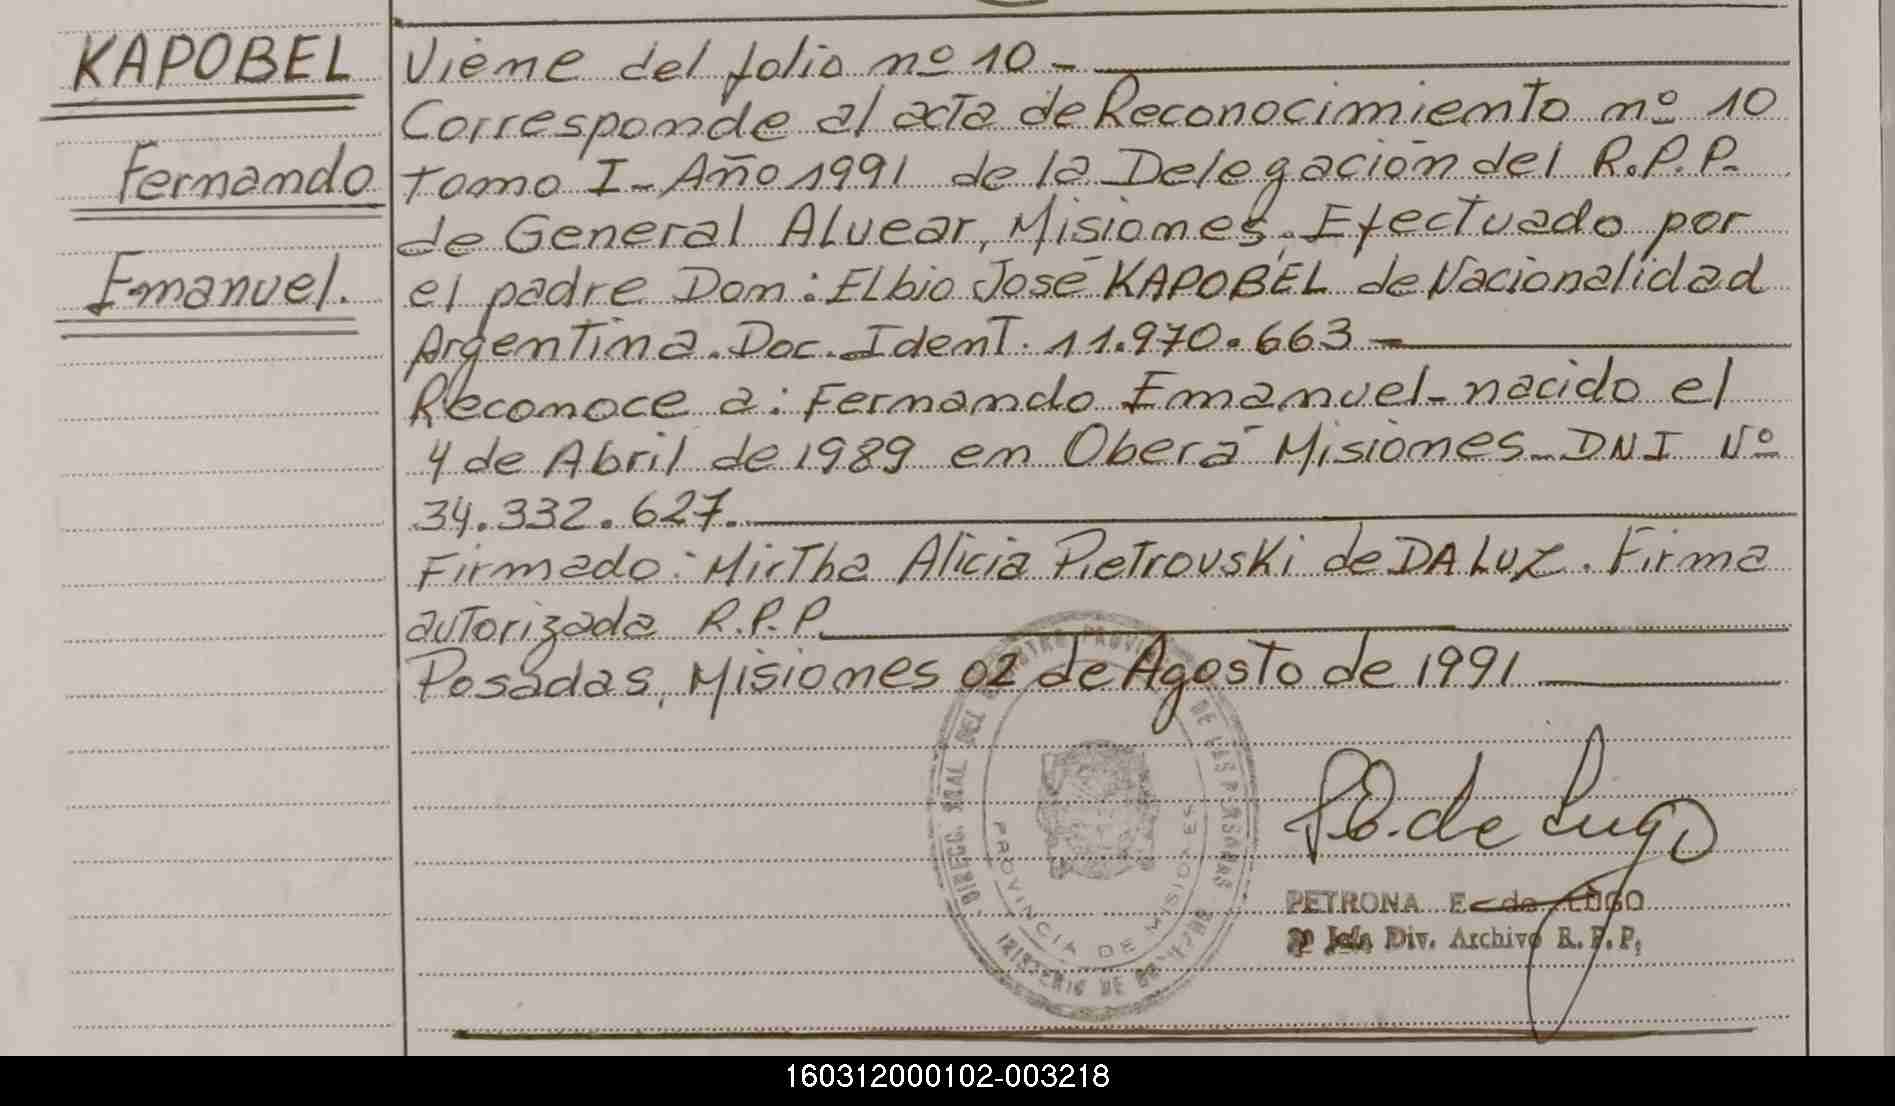 KAPOBEL
Fernando
Emanuel.
Viene del folio nº 10 -
Corresponde al acta de Reconocimiento nº 10
tomo I - Año 1991 de la Delegación del R.P.P.
de General Alvear, Misiones. Efectuado por
el padre Don: Elbio José KAPOBEL de Nacionalidad
Argentina. Doc. Ident. 11.970.663 -
Reconoce a: Fernando Emanuel - nacido el
4 de Abril de 1989 en Oberá Misiones - DNI Nº
34.332.627.
Firmado: Mirtha Alicia Pietrovski de DA LUZ. Firma
autorizada R.P.P.
Posadas, Misiones 02 de Agosto de 1991
DIRECC. GRAL DEL REGISTRO PROVINCIAL DE LAS PERSONAS
PROVINCIA DE MISIONES
MINISTERIO DE GOBIERNO
P.E. de Lugo
PETRONA E. de LUGO
Jefe Div. Archivo R.P.P.
160312000102-003218